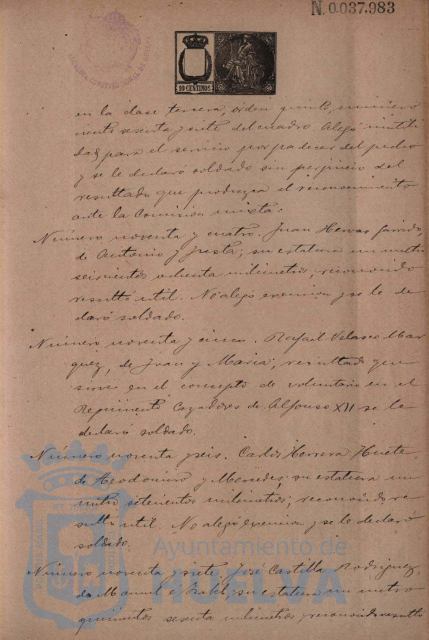 N. 0.037.983
10 CENTIMOS
en la clase tercera, orden quinto, número
sesenta y siete del cuadro. Alegó inutili
dad para el servicio por padecer del pecho
y se le declaró soldado sin perjuicio del
resultado que produzca el reconocimiento
ante la Comision mixta.
Número noventa y cuatro. Juan Hervas Garrido,
de Antonio y Justa; su estatura un metro
seiscientos ochenta milimetros; reconocido
resultó util. No alegó exencion y se le de
claró soldado.
Número noventa y cinco. Rafael Velasco Mar
quez, de Juan y Maria, resultado que
sirve en el concepto de voluntario en el
Regimiento Cazadores de Alfonso XII se le
declaró soldado.
Número noventa y seis. Carlos Herrera Huete,
de Teodomiro y Mercedes; su estatura un
metro setecientos milimetros; reconocido re
sultó util. No alegó exencion y se le declaró
soldado.
Número noventa y siete. José Castilla Rodriguez,
de Manuel é Isabel, su estatura un metro
quinientos sesenta milimetros; reconocido resultó
Ayuntamiento de
HUELVA